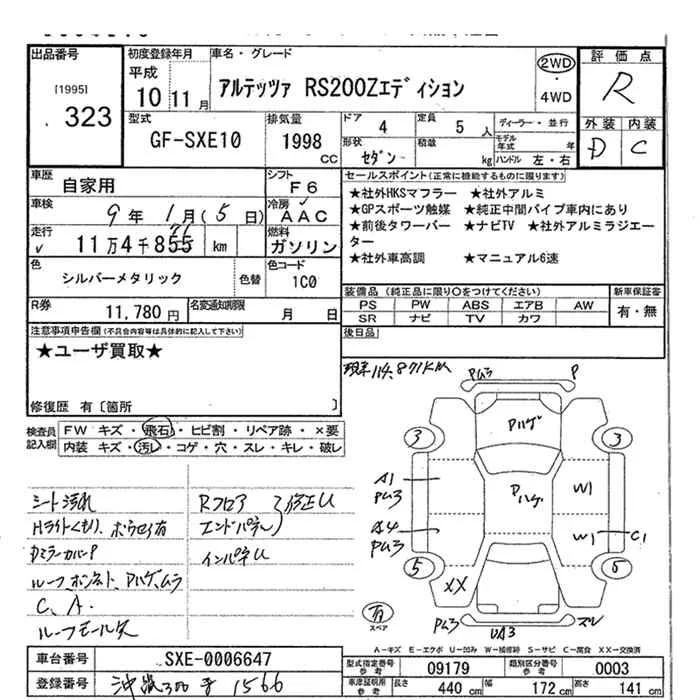 出品番号
[1995]
323
初度登録年月
平成
10 11月
車名・グレード
アルテッツァ RS200Zエディション
2WD
4WD
評価点
R
外装 内装
D C
型式
GF-SXE10
排気量
1998
CC
ドア 4
定員 5 人
形状 セダン
積載 kg
ディーラー・並行
モデル年式 年
ハンドル 左・右
車歴
自家用
シフト
F6
車検
9年 1月(5日)
冷房
AAC
走行
11万4千855 km
燃料
ガソリン
色
シルバーメタリック
色替
色コード
1C0
R券
11,780円
名変通知期限
月 日
セールスポイント(正常に機能するものに限ります)
★社外HKSマフラー ★社外アルミ
★GPスポーツ触媒 ★純正中間パイプ車内にあり
★前後タワーバー ★ナビTV ★社外アルミラジエー
ター
★社外車高調 ★マニュアル6速
装備品(純正品に限り○をつけてください)
PS PW ABS エアB AW
SR ナビ TV カワ
新車保証書
有・無
後日品
注意事項申告欄(不具合内容等は具体的に記入して下さい)
★ユーザ買取★
修復歴 有〔箇所 〕
現車114,871KM
検査員
記入欄
FW キズ・飛石・ヒビ割・リペア跡・×要
内装 キズ・汚レ・コゲ・穴・スレ・キレ・破レ
シート汚れ
Rフロア
修正U
Hライトくもり、
エンドパネル
Dミラーカバー
インパネU
ルーフ、ボンネト、Pハゲ、ムラ
C、A、
ルーフモール欠
Pム3
P
Pハゲ
3
3
A1
Pム3
Pハゲ
W1
A4
Pム3
W1
C1
5
5
XX
有
スペア
Pム3
UA3
スレ
A-キズ E-エクボ U-凹み W-補修跡 S-サビ C-腐食 XX-交換済
車台番号
SXE-0006647
登録番号
沖縄300 す 1566
型式指定番号
参考
09179
類別区分番号
参考
0003
車庫証明用
参考
長さ 440 cm
幅 172 cm
高さ 141 cm